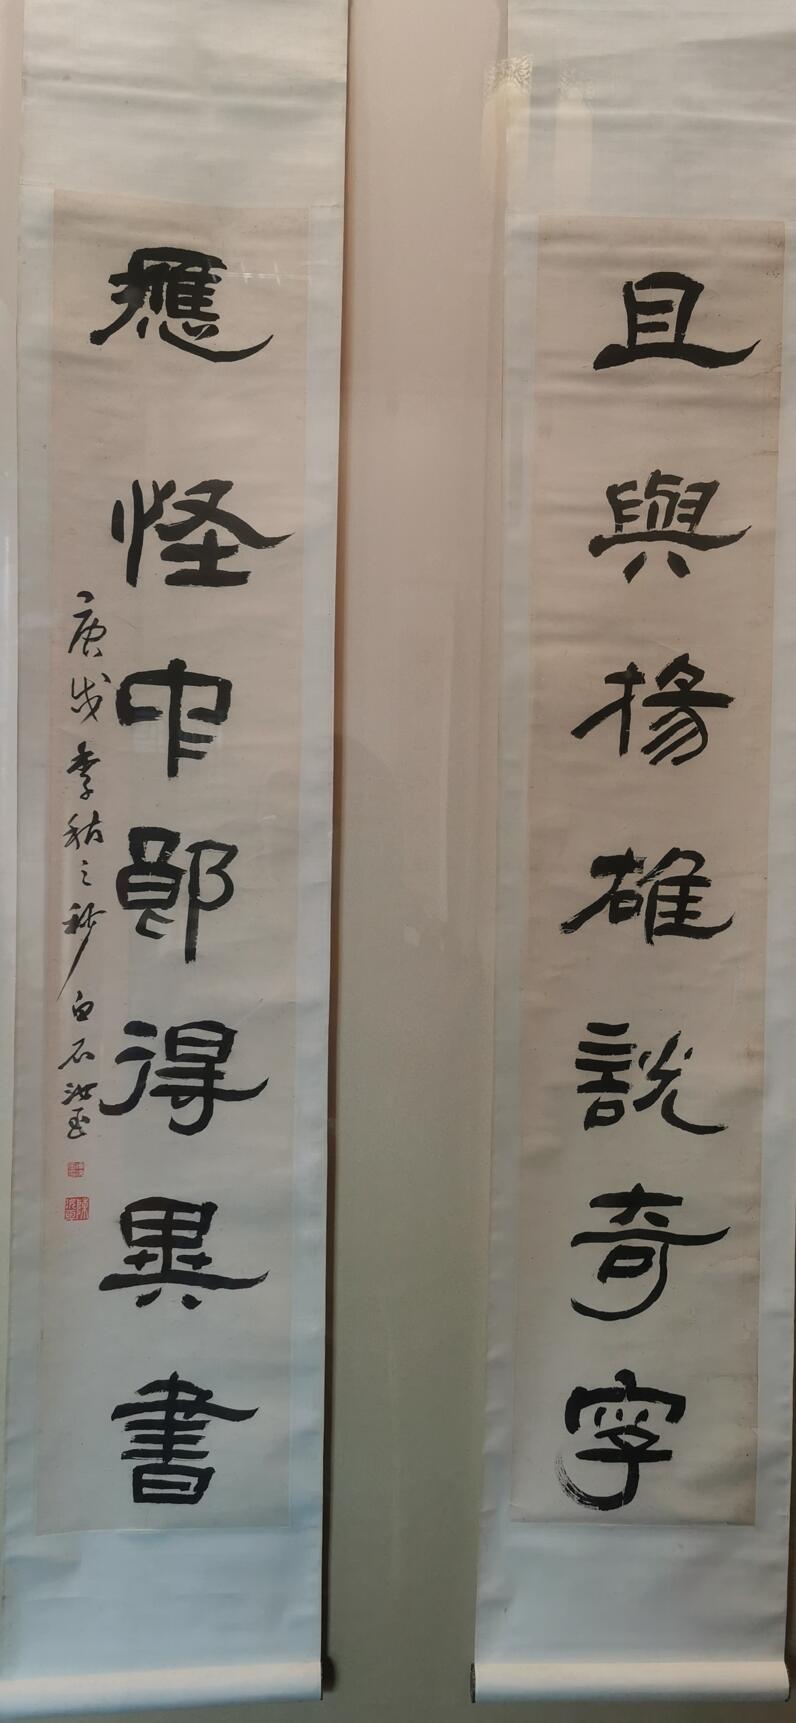 且與揚雄說奇字
應怪中郎得異書
庚戌季秋之杪白石汝玉